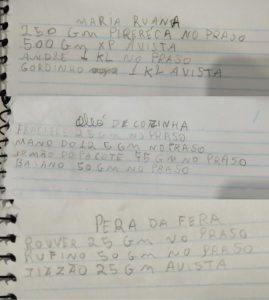 MARIA RUANA
250 GM PEREREÇA NO PRASO
500 GM XP AVISTA
ANDRE 1 KL NO PRASO
GORDINHO 1 KL AVISTA
OLEÓ DE COZINHA
25 GM NO PRASO
MANO DO 12 5 GM NO PRASO
IRMÃO DO PACOTE 45 GM NO PRASO
BAIANO 50 GM NO PRASO
PERA DA FERA
ROUVER 25 GM NO PRASO
RUFINO 50 GM NO PRASO
JIAZÃO 25 GM AVISTA